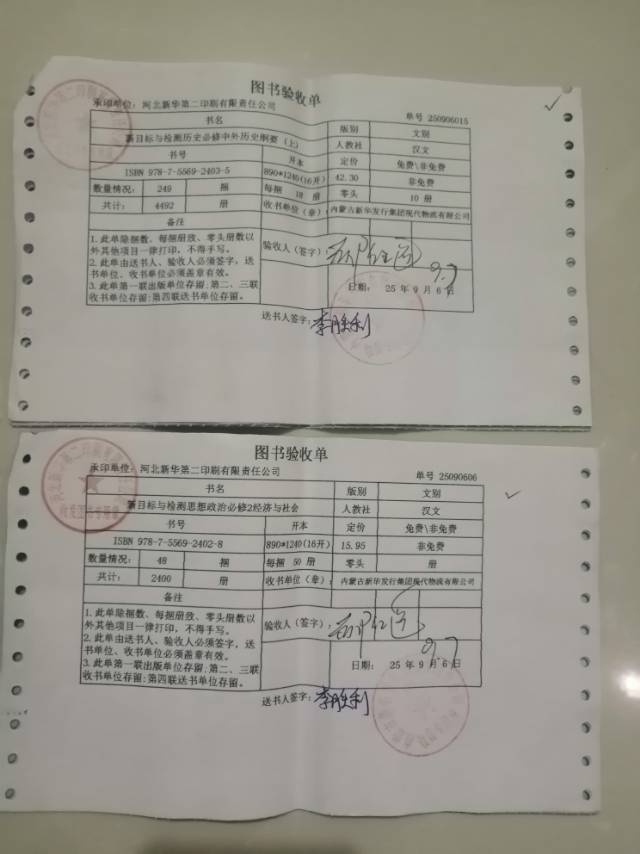 图书验收单
承印单位：河北新华第二印刷有限责任公司
单号 250906015
书名 版别 文别
新目标与检测历史必修中外历史纲要（上） 人教社 汉文
书号 开本 定价 免费\非免费
ISBN 978-7-5569-2403-5 890*1240(16开) 42.30 非免费
数量情况： 249 捆 每捆 18 册 零头 10 册
共计： 4492 册 收书单位（章）： 内蒙古新华发行集团现代物流有限公司
备注
1. 此单除捆数、每捆册放、零头册数以
外其他项目一律打印，不得手写。
2. 此单由送书人、验收人必须签字，送
书单位、收书单位必须盖章有效。
3. 此单第一联出版单位存留；第二、三联
收书单位存留；第四联送书单位存留。
验收人（签字）
9.7
日期： 25 年 9 月 6 日
送书人签字： 李胜利
图书验收单
承印单位：河北新华第二印刷有限责任公司
单号 25090606
书名 版别 文别
新目标与检测思想政治必修2经济与社会 人教社 汉文
书号 开本 定价 免费\非免费
ISBN 978-7-5569-2402-8 890*1240(16开) 15.95 非免费
数量情况： 48 捆 每捆 50 册 零头 册
共计： 2400 册 收书单位（章）： 内蒙古新华发行集团现代物流有限公司
备注
1. 此单除捆数、每捆册放、零头册数以
外其他项目一律打印，不得手写。
2. 此单由送书人、验收人必须签字，送
书单位、收书单位必须盖章有效。
3. 此单第一联出版单位存留；第二、三联
收书单位存留；第四联送书单位存留。
验收人（签字）：
9.7
日期： 25 年 9 月 6 日
送书人签字： 李胜利